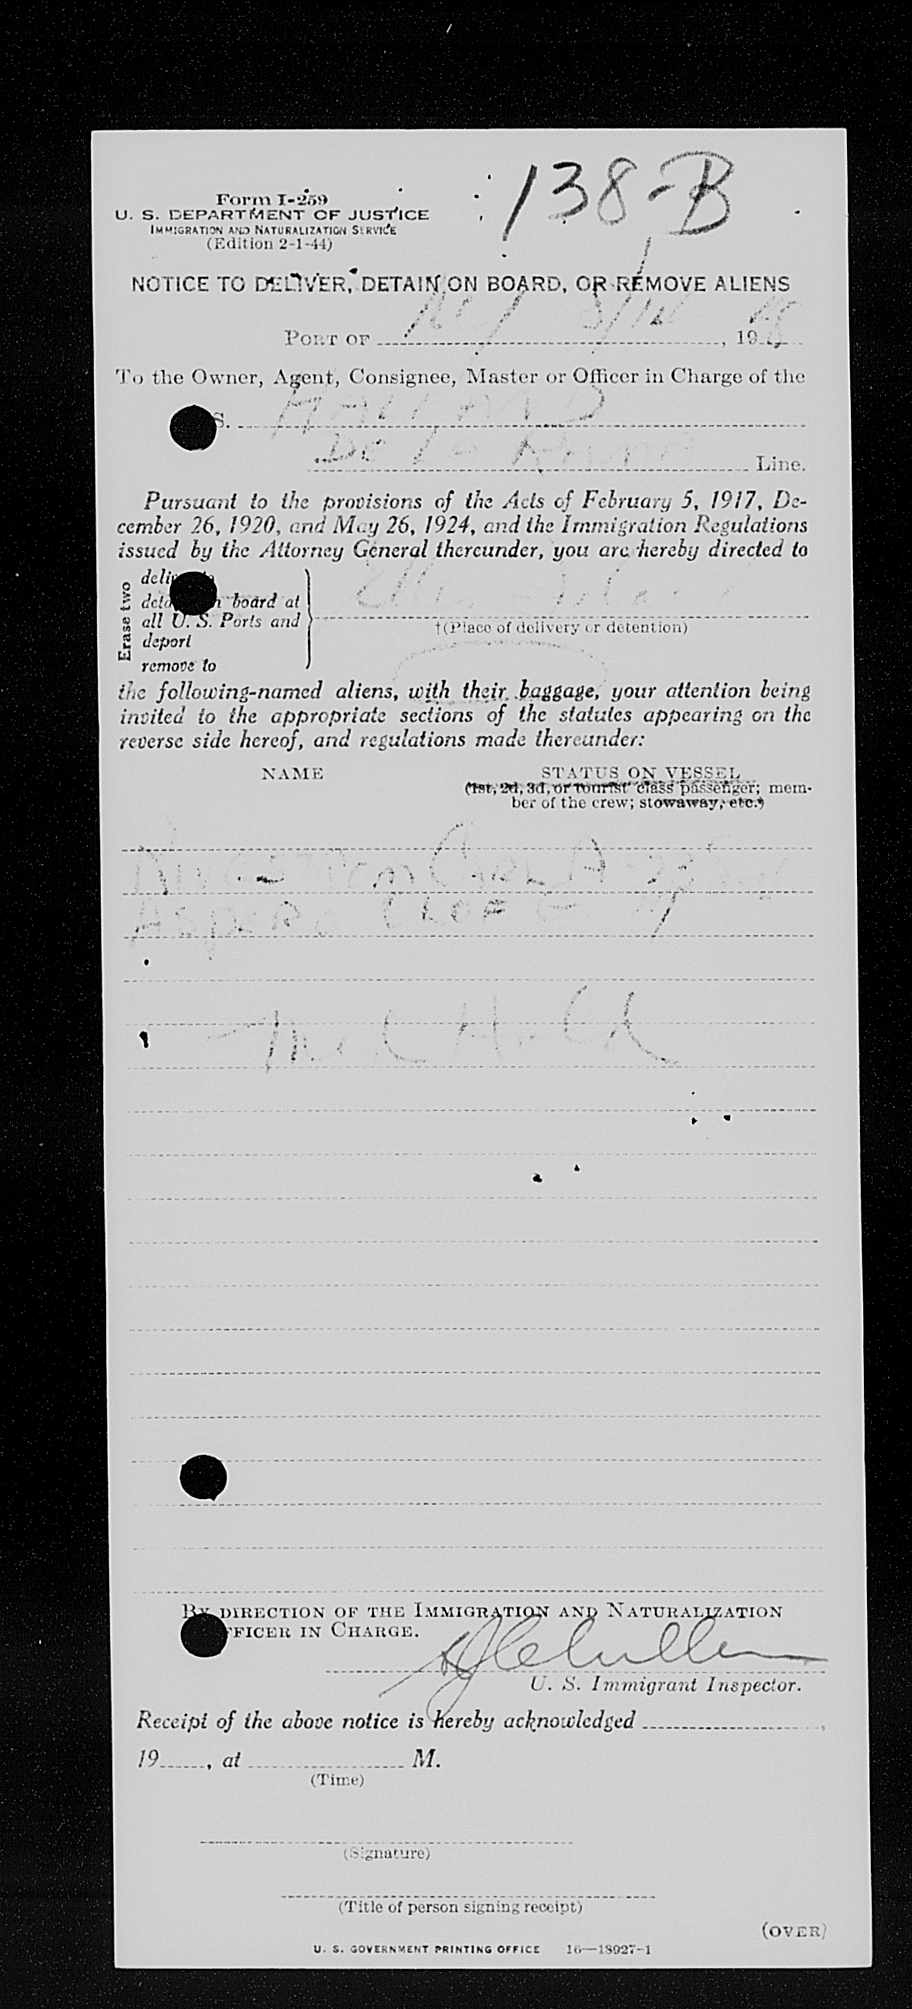 138-B
Form I-259
U. S. DEPARTMENT OF JUSTICE
IMMIGRATION AND NATURALIZATION SERVICE
(Edition 2-1-44)
NOTICE TO DELIVER, DETAIN ON BOARD, OR REMOVE ALIENS
PORT OF N Y 3/12, 1948
To the Owner, Agent, Consignee, Master or Officer in Charge of the
S.
Line.
Pursuant to the provisions of the Acts of February 5, 1917, De-
cember 26, 1920, and May 26, 1924, and the Immigration Regulations
issued by the Attorney General thereunder, you are hereby directed to
Erase two
board at
all U. S. Ports and
deport
remove to
Ellis Island
†(Place of delivery or detention)
the following-named aliens, with their baggage, your attention being
invited to the appropriate sections of the statutes appearing on the
reverse side hereof, and regulations made thereunder:
NAME
STATUS ON VESSEL
(1st, 2d, 3d, or tourist class passenger; mem-
ber of the crew; stowaway, etc.)
Med Hold
BY DIRECTION OF THE IMMIGRATION AND NATURALIZATION
OFFICER IN CHARGE.
U. S. Immigrant Inspector.
Receipt of the above notice is hereby acknowledged
19, at M.
(Time)
(Signature)
(Title of person signing receipt)
(OVER)
U. S. GOVERNMENT PRINTING OFFICE 16—18927-1